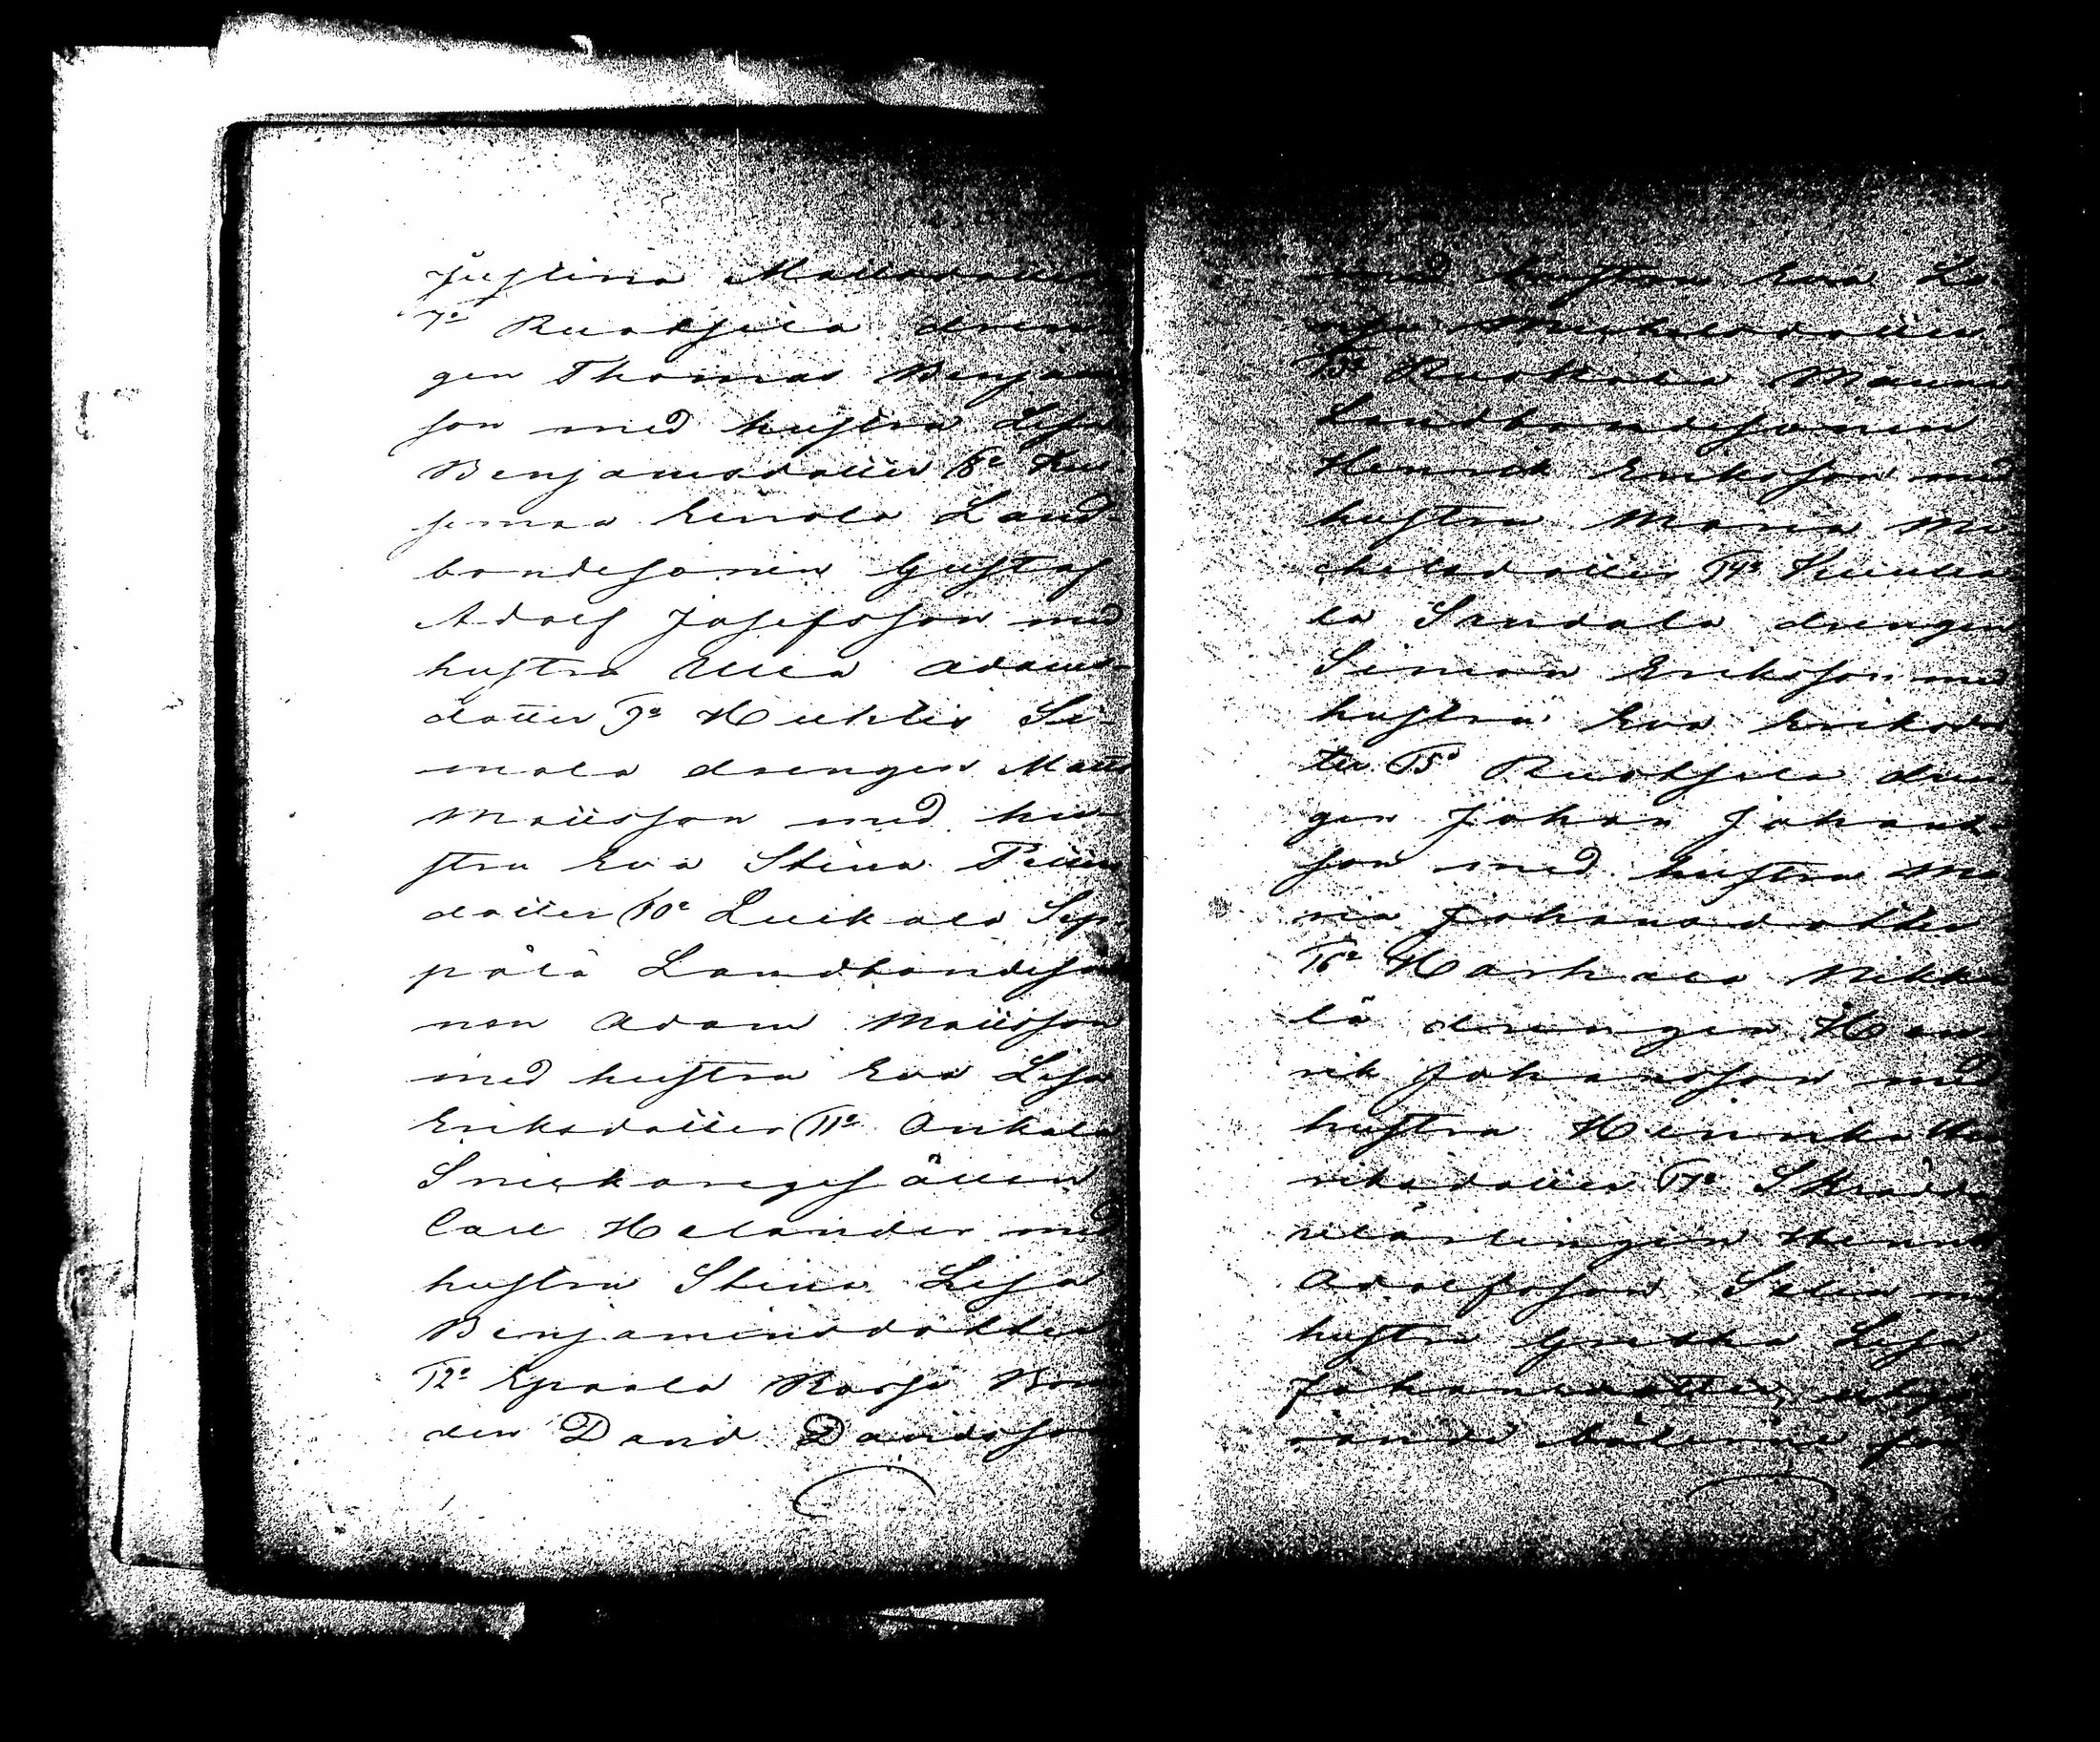 Justina Mattsdotter
7o Ruokjela dren-
gen Thomas Benjam
son med hustru Lisa
Benjamsdotter 8o
Eerola Land-
bondesonen Gustaf
Adolf Josefsson med
hustru Ulla Adams-
dotter 9o Huhtis Si-
mola drengen Matts
Mattsson med hu-
stru Eva Stina
dotter 10o Luikala Sep-
pälä Landbondeso
nen Adam Mattsson
med hustru Eva Lisa
Eriksdotter 11o Onkala
Snickaregesällen
Carl Helander med
hustru Stina Lisa
Benjaminsdotter
12o Epaala Bon
den David Davidsson
med hustrun Eva Lo
visa Michelsdotter
13o Ruokola
Landbondesonen
Henrik Eriksson med
hustru Maria Mi
chelsdotter 14o
la drengen
Simon Eriksson med
hustru Eva Eriksdot
ter 15o Ruokjela dren
gen Johan Johans
son med hustru Ma
ria Johansdotter
16o Harhala Mikko
lä drengen Hen
rik Johansson med
hustru Henrika Hen
riksdotter 17o Skrädda
relärlingen Henrik
Adolfsson med
hustru Gretha Lisa
Johansdotter, utgö
rande böterne för